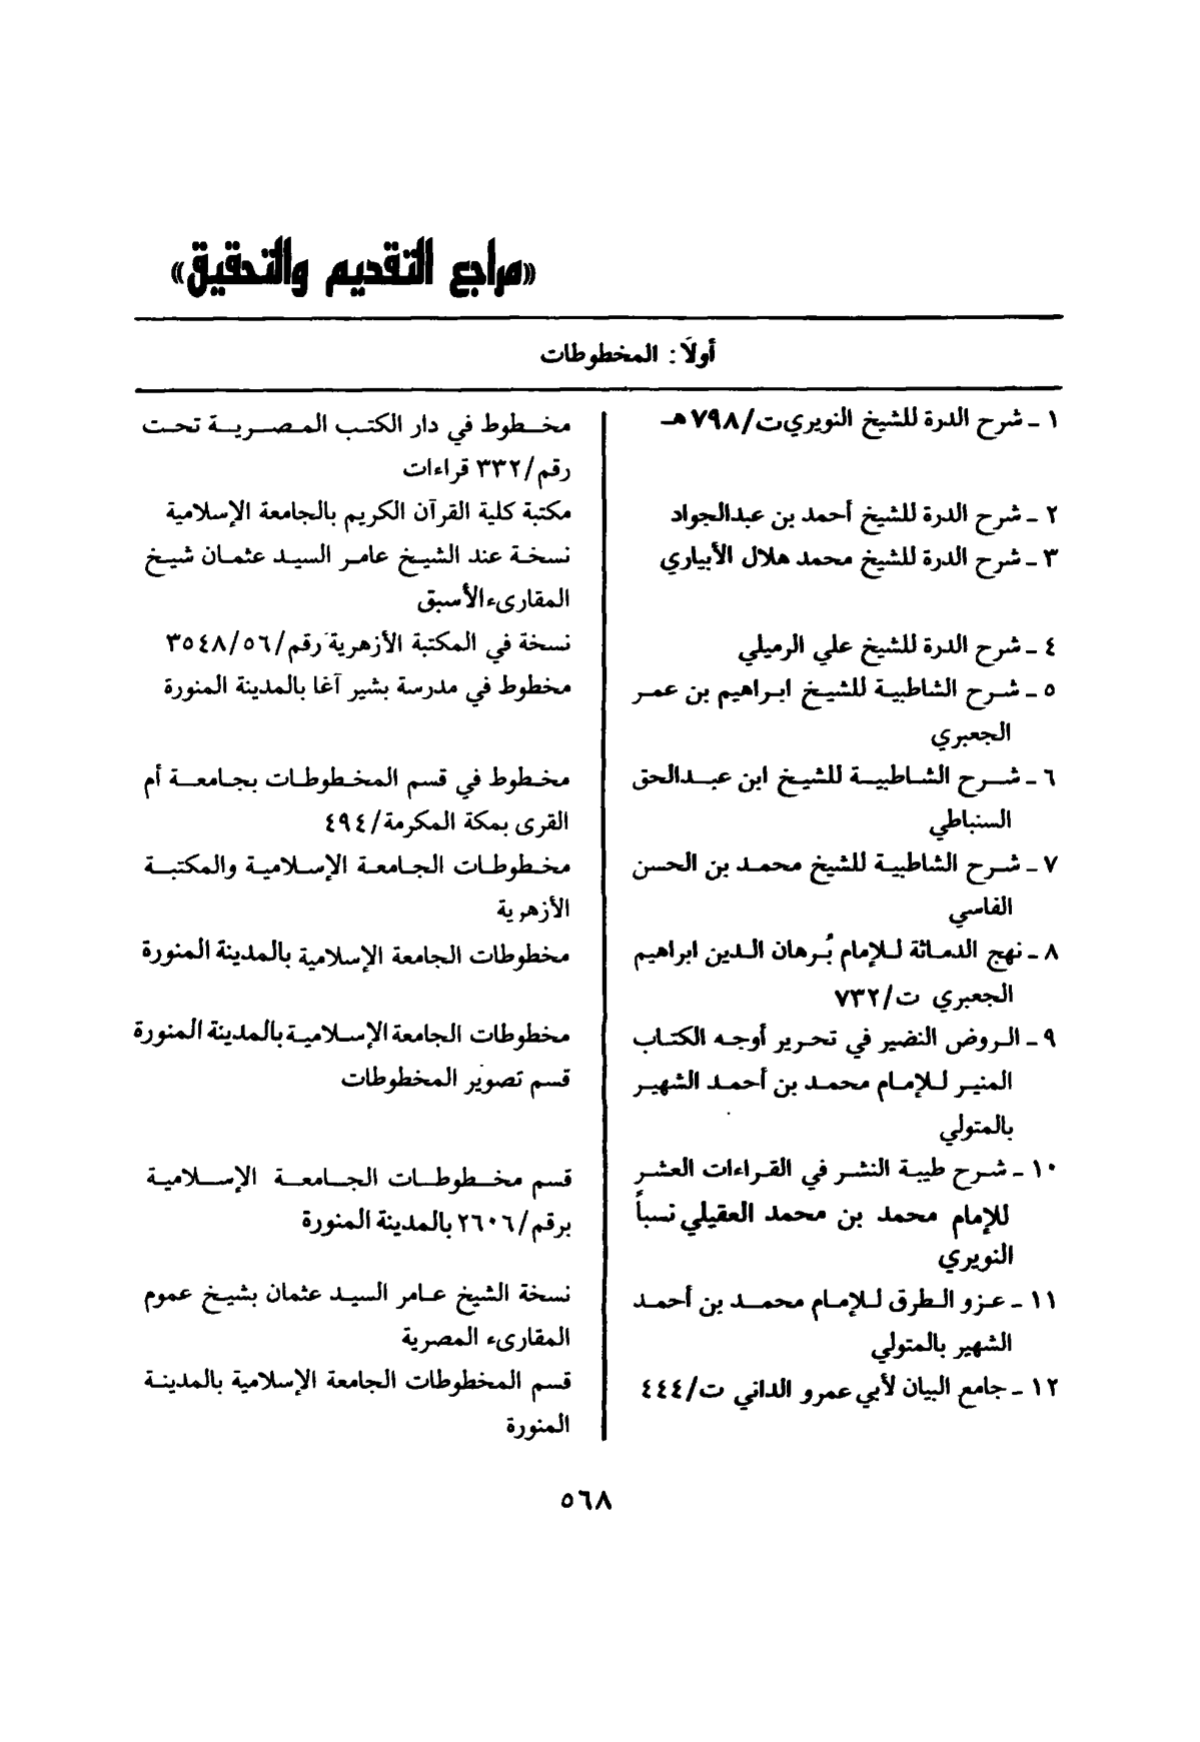 «مراجع التقديم والتحقيق»
أولاً: المخطوطات
١ ـ شرح الدرة للشيخ النويري ت/٧٩٨هـ
مخطوط في دار الكتب المصرية تحت
رقم/٣٣٢ قراءات
٢ ـ شرح الدرة للشيخ أحمد بن عبدالجواد
مكتبة كلية القرآن الكريم بالجامعة الإسلامية
٣ ـ شرح الدرة للشيخ محمد هلال الأبياري
نسخة عند الشيخ عامر السيد عثمان شيخ
المقارىء الأسبق
٤ ـ شرح الدرة للشيخ علي الرميلي
نسخة في المكتبة الأزهرية رقم/٣٥٤٨/٥٦
٥ ـ شرح الشاطبية للشيخ ابراهيم بن عمر
الجعبري
مخطوط في مدرسة بشير آغا بالمدينة المنورة
٦ ـ شرح الشاطبية للشيخ ابن عبدالحق
السنباطي
مخطوط في قسم المخطوطات بجامعة أم
القرى بمكة المكرمة/٤٩٤
٧ ـ شرح الشاطبية للشيخ محمد بن الحسن
الفاسي
مخطوطات الجامعة الإسلامية والمكتبة
الأزهرية
٨ ـ نهج الدماثة للإمام بُرهان الدين ابراهيم
الجعبري ت/٧٣٢
مخطوطات الجامعة الإسلامية بالمدينة المنورة
٩ ـ الروض النضير في تحرير أوجه الكتاب
المنير للإمام محمد بن أحمد الشهير
بالمتولي
مخطوطات الجامعة الإسلامية بالمدينة المنورة
قسم تصوير المخطوطات
١٠ ـ شرح طيبة النشر في القراءات العشر
للإمام محمد بن محمد العقيلي نسباً
النويري
قسم مخطوطات الجامعة الإسلامية
برقم/٢٦٠٦ بالمدينة المنورة
١١ ـ عزو الطرق للإمام محمد بن أحمد
الشهير بالمتولي
نسخة الشيخ عامر السيد عثمان بشيخ عموم
المقارىء المصرية
١٢ ـ جامع البيان لأبي عمرو الداني ت/٤٤٤
قسم المخطوطات الجامعة الإسلامية بالمدينة
المنورة
٥٦٨